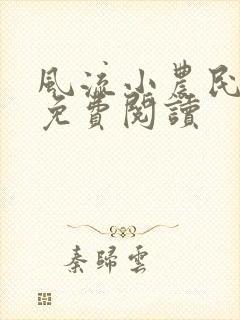 風流小農民
免費閱讀
秦歸雲